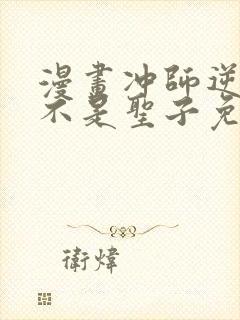 漫畫冲師逆
不是聖子免
衛煒